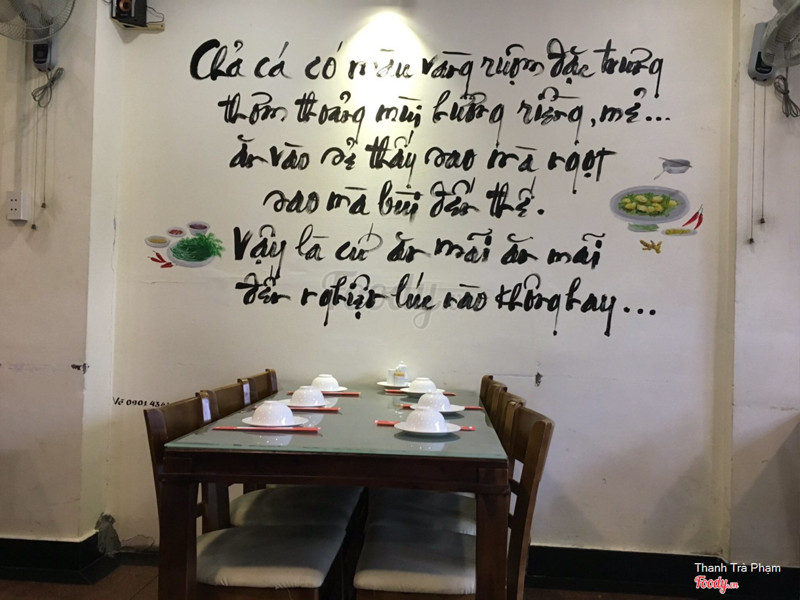 Chả cá có màu vàng rượm đặc trưng
thơm thoảng mùi hương riềng, mẻ...
ăn vào sẽ thấy sao mà ngọt
sao mà bùi đến thế.
Vậy là cứ ăn mãi ăn mãi
đến nghiện lúc nào không hay...
Foody
Thanh Trà Phạm
Foody.vn